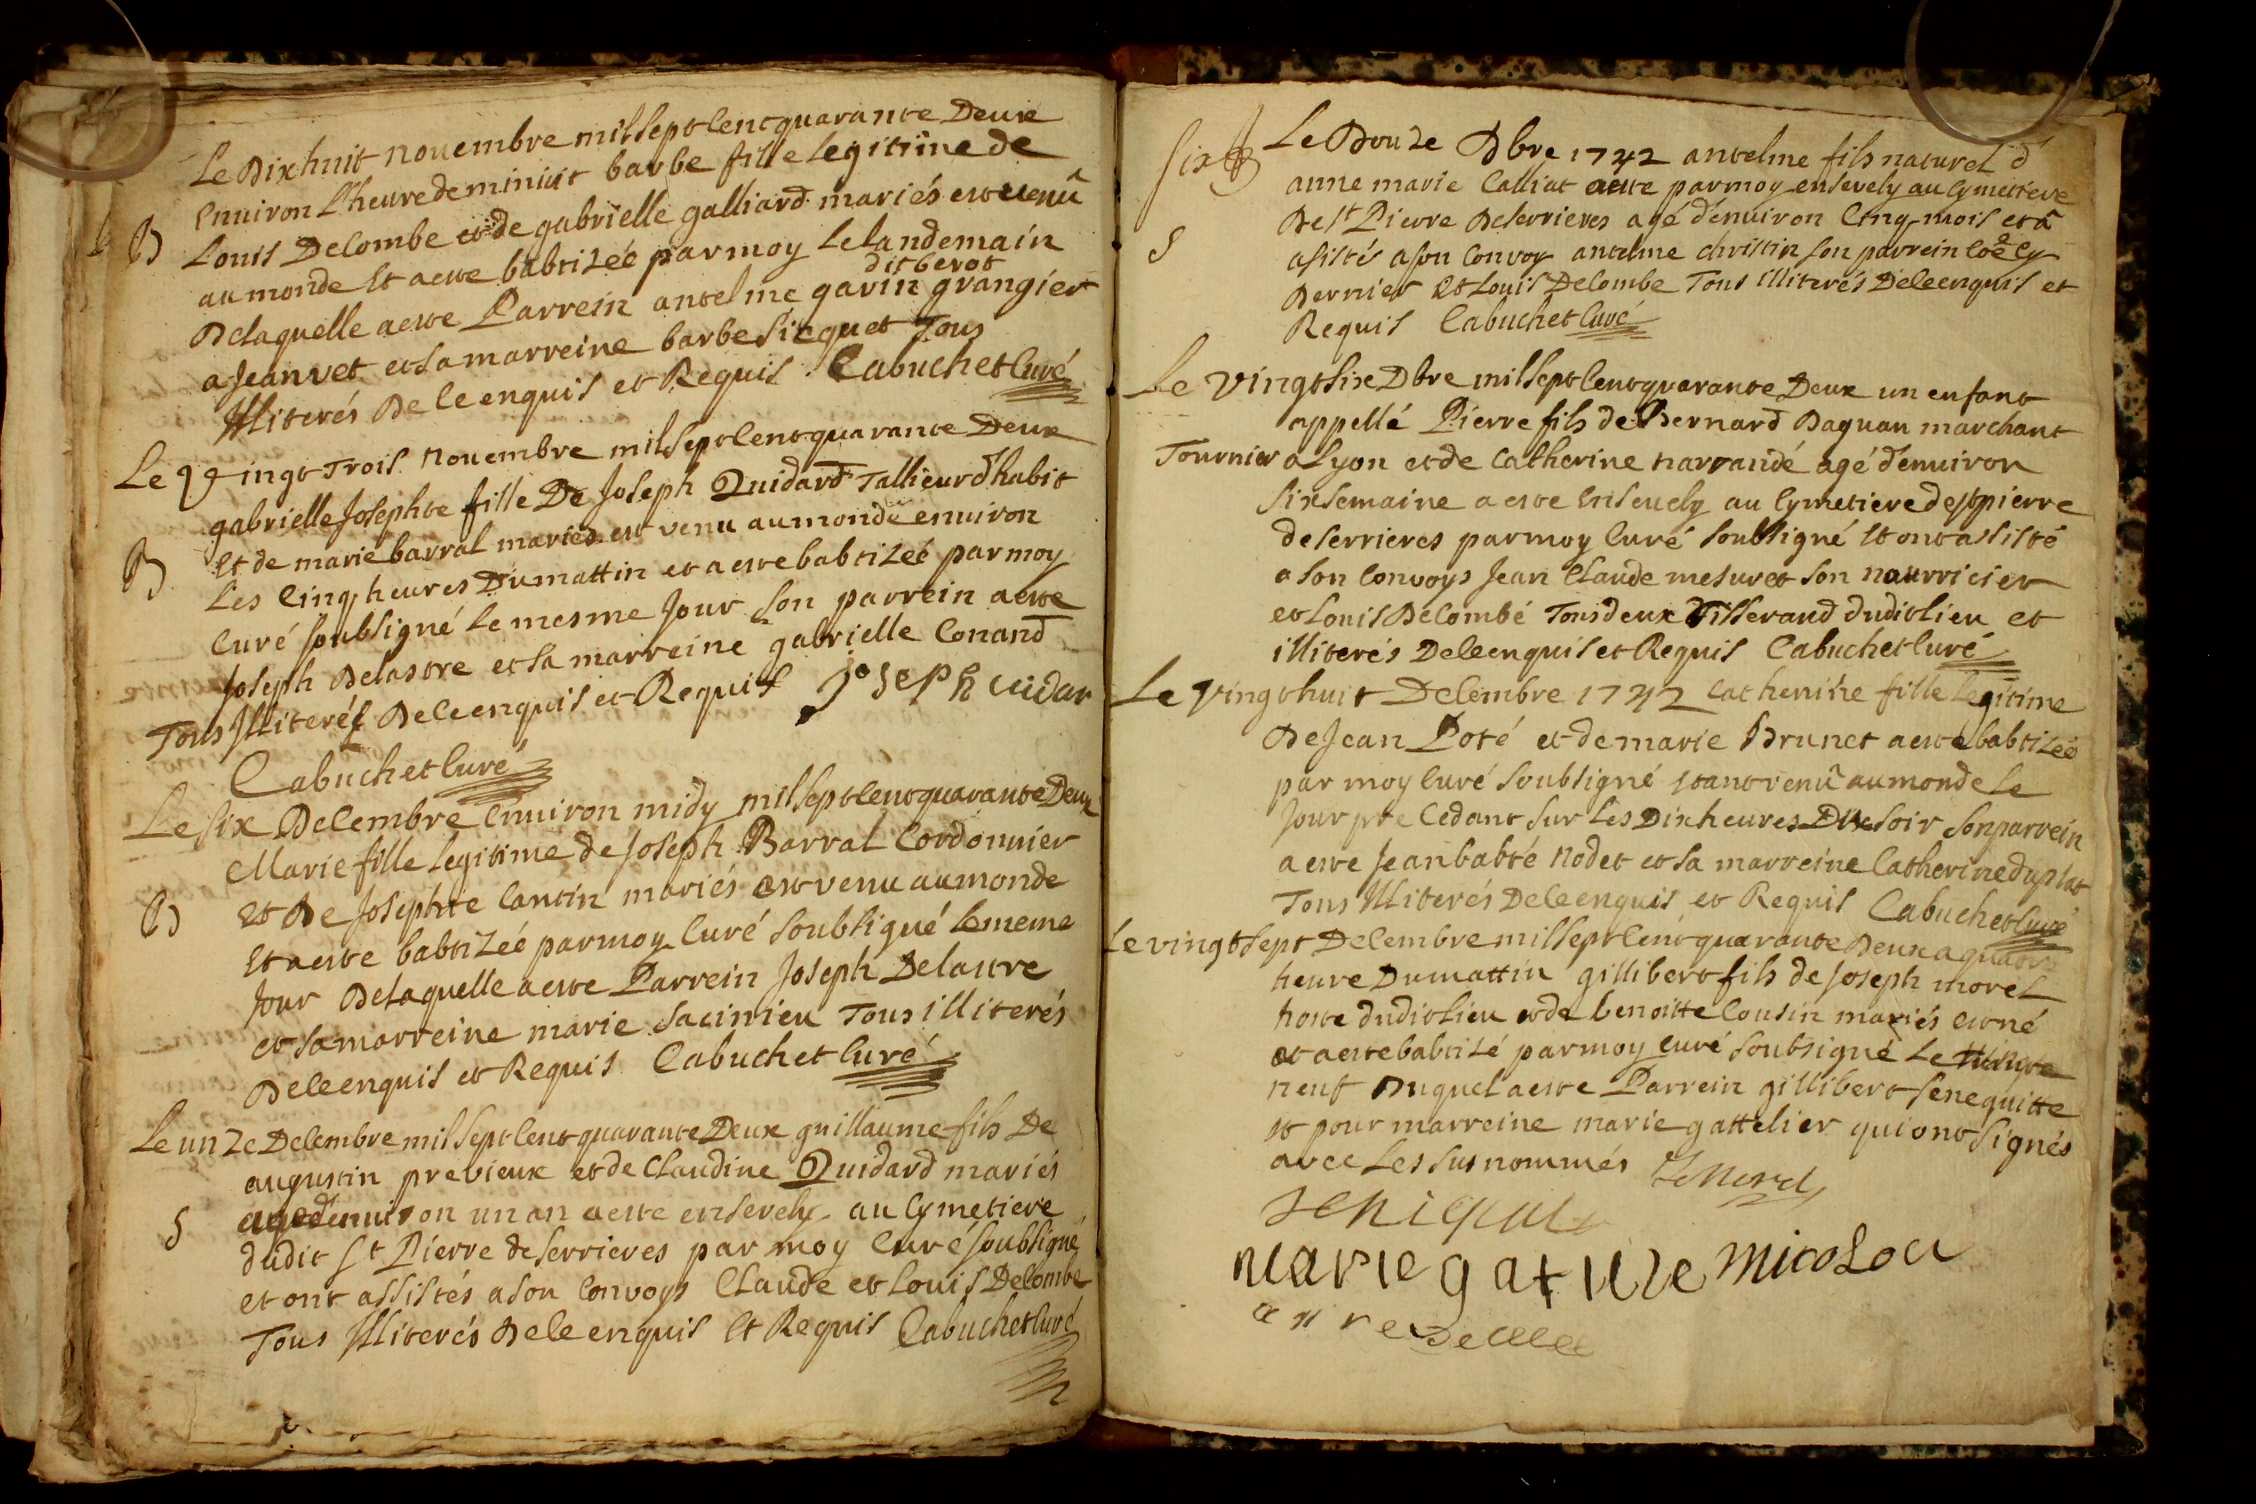 Le Dixhuit novembre mil sept Cent quarante Deux
Environ L'heure de miniuit barbe fille legitime de
B Louis DeCombe et de gabrielle galliard mariés est venû
au monde Et a este babtizéé par moy Le Landemain
dit berot
De laquelle a este Parrein antelme gavin grangier
a Jeanvet et sa marreine barbe Sicquet Tous
Illiterés De Ce enquis et Requis Cabuchet Curé
Le Vingt Trois novembre mil sept Cent quarante Deux
gabrielle Josephte fille De Joseph Quidard Tallieur d'habit
B Et de marie barral mariés est venu au monde environ
Les Cinq heures Du mattin et a este babtizéé par moy
Curé soubsigné Le mesme Jour son parrein a este
Joseph Delastre et sa marreine gabrielle Conand
Tous Illiterés De Ce enquis et Requis Joseph cuidar
Cabuchet Curé
Le six Decembre Environ midy mil sept Cent quarante Deux
Marie fille Legitime de Joseph Barral Cordonnier
B Et De Josephte Cantin mariés est venu au monde
Et a este babtizéé par moy Curé soubsigné Le meme
Jour De laquelle a este Parrein Joseph Delastre
et sa marreine marie Sacinieu Tous illiterés
De Ce enquis et Requis Cabuchet Curé
Le unze Decembre mil sept Cent quarante Deux guillaume fils De
augustin previeux et de Claudine Quidard mariés
S agé d'environ un an a este ensevely au Cymetiere
dudit St Pierre de serrieres par moy Curé soubsigné
et ont assistés a son Convoys Claude et Louis DeCombe
Tous Illiterés De Ce enquis Et Requis Cabuchet Curé
six Le Douze Dbre 1742 antelme fils naturel d'
anne marie Calliat a este par moy ensevely au Cymetiere
De St Pierre De serrieres agé d'environ Cinq mois et â
S asistés a son Convoy antelme christin son parrein
Dernier Et Louis DeCombe Tous Illiterés De Ce enquis et
Requis Cabuchet Curé
Le vingt six Dbre mil sept Cent quarante Deux un enfant
appellé Pierre fils de Bernard Daguan marchant
Tournier a Lyon et de Catherine narrandé agé d'environ
six semaine a este Ensevely au Cymetiere de st pierre
de serrieres par moy Curé soubsigné Et ont assisté
a son Convoys Jean Claude mesuret son nourricier
et Louis DeCombe Tous deux Tisserand dudit lieu et
illiterés De Ce enquis et Requis Cabuchet Curé
Le vingt huit Decembre 1742 Catherine fille Legitime
De Jean Poté et de marie Brunet a este babtizéé
par moy Curé soubsigné Etant venû au monde Le
Jour pre Cedant sur Les Dix heures Du soir son parrein
a este Jean babté nodet et sa marreine Catherine duplat
Tous Illiterés De Ce enquis et Requis Cabuchet Curé
Le vingt sept Decembre mil sept Cent quarante Deux a quatre
heure Du mattin gillibert fils de Joseph morel
hoste dudit Lieu et de benoitte Cousin mariés est né
et a este babtizé par moy Curé soubsigné Le
neuf Duquel a este Parrein gillibert senequitte
Et pour marreine marie gattelier qui ont signés
avec Les susnommés
marie gat micolou